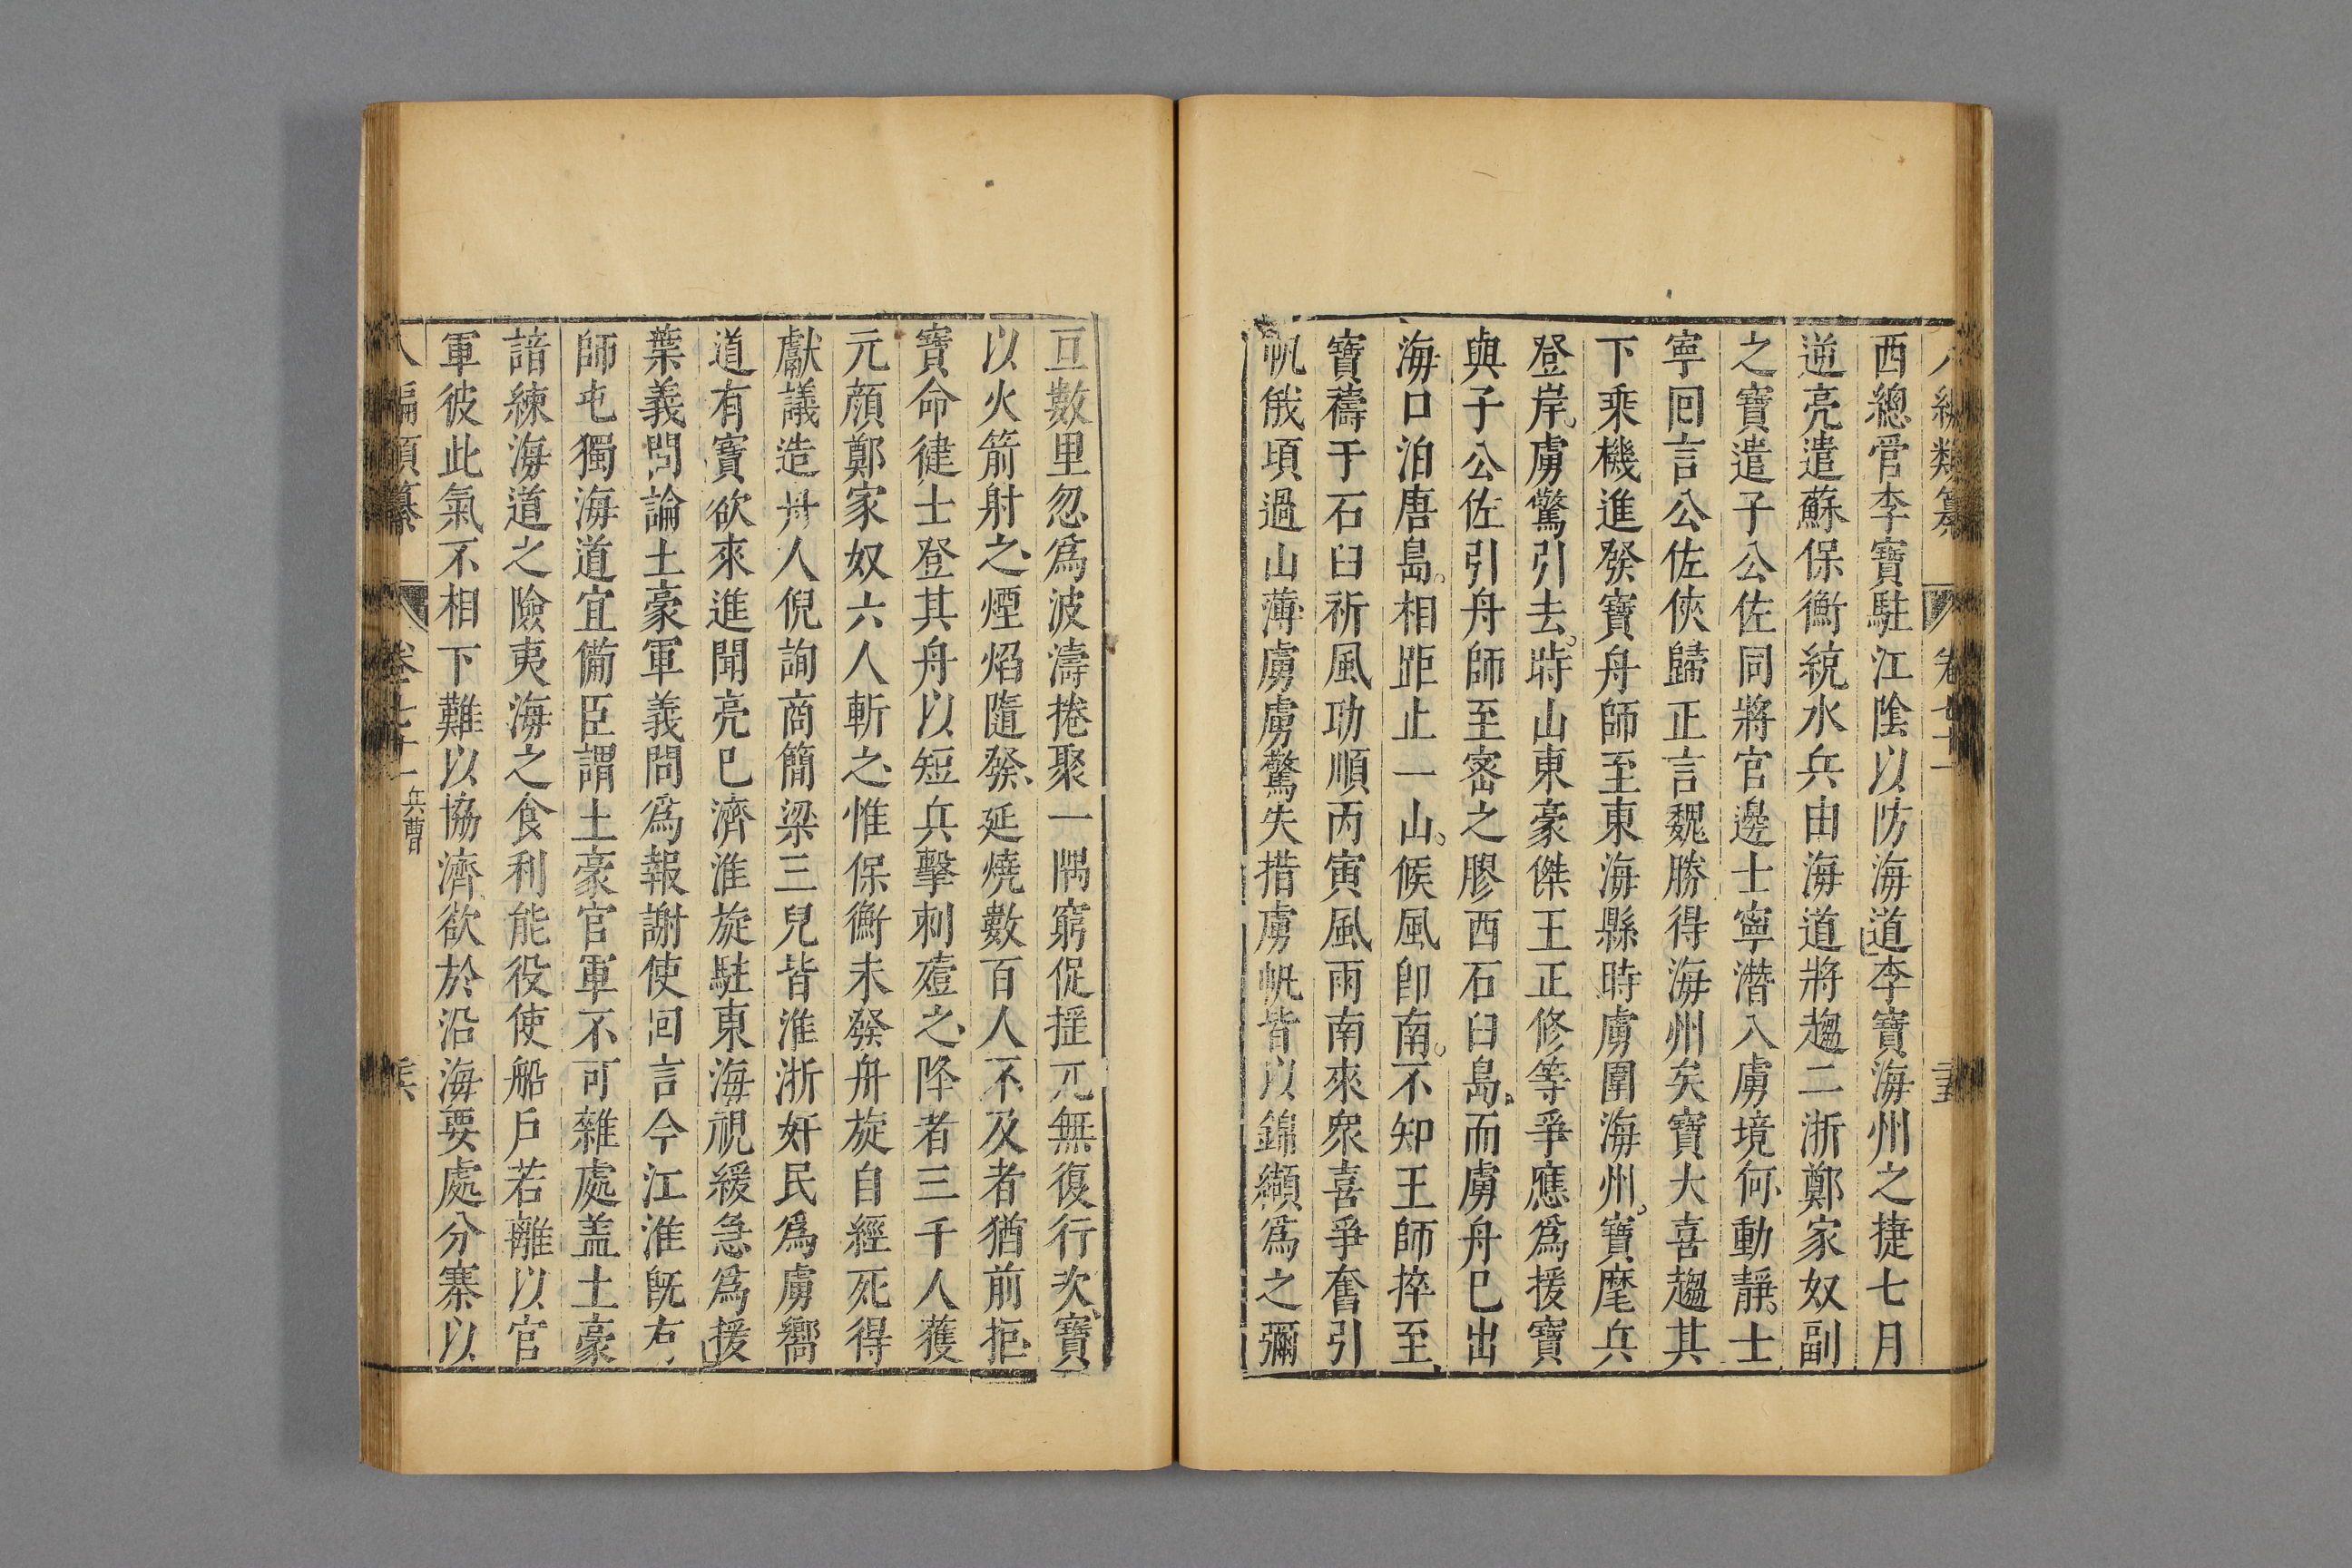 西總管李寶駐江陰以防海道李寶海州之捷七月
逆亮遣蘇保衡統水兵由海道將趨二浙鄭家奴副
之寶遣子公佐同將官邊士寧潛入虜境伺動靜士
寧回言公佐俠歸正言魏勝得海州矣寶大喜趨其
下乘機進發寶舟師至東海縣時虜圍海州寶麾兵
登岸虜驚引去時山東豪傑王正修等爭應為援寶
與子公佐引舟師至密之膠西石臼島而虜舟已出
海口泊唐島相距止一山候風卽南不知王師猝至
寶禱于石臼祈風功順丙寅風雨南來衆喜爭奮引
帆俄頃過山薄虜虜驚失措虜帆皆以錦纈爲之彌
亘數里忽爲波濤捲聚一隅窮促搖兀無復行次寶
以火箭射之煙焰隨發延燒數百人不及者猶前拒
寶命健士登其舟以短兵擊刺殪之降者三千人獲
元顔鄭家奴六人斬之惟保衡未發舟旋自經死得
獻議造舟人倪詢商簡梁三兒皆淮浙奸民爲虜嚮
道有寶欲來進聞亮已濟淮旋駐東海視緩急爲援
葉義問論土豪軍義問爲報謝使回言今江淮既有
師屯獨海道宜備臣謂土豪官軍不可雜處盖土豪
諳練海道之險夷海之食利能役使船戶若雜以官
軍彼此氣不相下難以協濟欲於沿海要處分寨以
八編類纂
卷七十一
兵曹